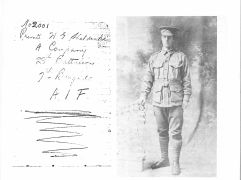 No 2001
Private W G
A Company
25th Battalion
7th Brigade
A I F